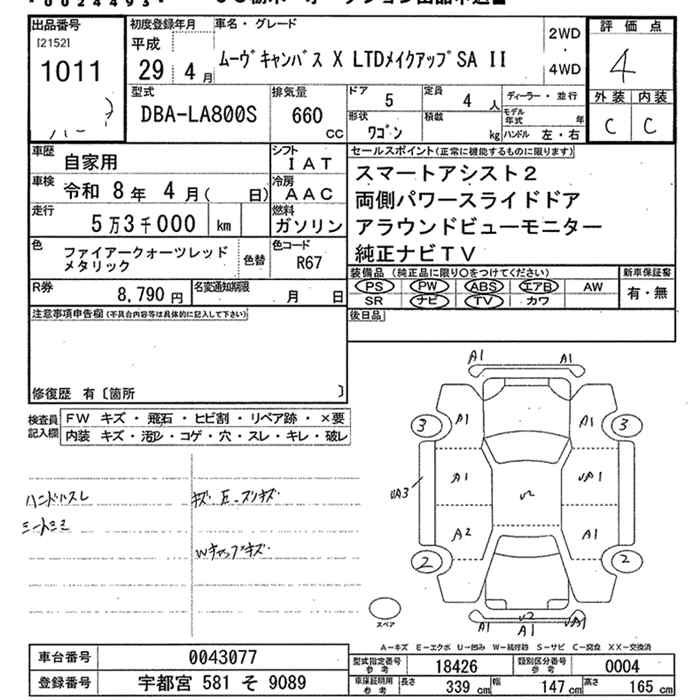 0 0 2 4 4 9 3
出品番号
[2152]
1011
初度登録年月
平成
29年4月
車名・グレード
ムーヴキャンバス X LTDメイクアップSA II
2WD
・
4WD
評価点
4
外装 内装
C C
型式
DBA-LA800S
排気量
660 CC
ドア 5
定員 4人
ディーラー・並行
形状 ワゴン
積載 kg
モデル年式 年
ハンドル 左・右
車歴 自家用
シフト IAT
車検 令和 8年 4月( 日)
冷房 AAC
走行 5万3千000 km
燃料 ガソリン
色 ファイアークォーツレッド
メタリック
色替
色コード R67
R券 8,790円
名変通知期限 月 日
セールスポイント(正常に機能するものに限ります)
スマートアシスト2
両側パワースライドドア
アラウンドビューモニター
純正ナビTV
装備品(純正品に限り○をつけてください)
PS PW ABS エアB AW
SR ナビ TV カワ
新車保証書
有・無
後日品
注意事項申告欄(不具合内容等は具体的に記入して下さい)
修復歴 有〔箇所 〕
検査員記入欄
FW キズ・飛石・ヒビ割・リペア跡・×要
内装 キズ・汚レ・コゲ・穴・スレ・キレ・破レ
ハンドルスレ
シートシミ
キズ E. スリキズ
Wキャップキズ
A1 A1
3 A1 A1 3
UA3 A1 U2 UA1
A2 A1
2 2
A1 U2 UA1
A1
スペア
A-キズ E-エクボ U-凹み W-補修跡 S-サビ C-腐食 XX-交換済
車台番号 0043077
登録番号 宇都宮 581 そ 9089
型式指定番号 参考 18426
類別区分番号 参考 0004
車庫証明用 参考 長さ 339 cm 幅 147 cm 高さ 165 cm